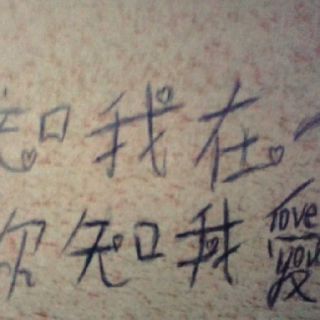 知我在
你知我愛
love
you